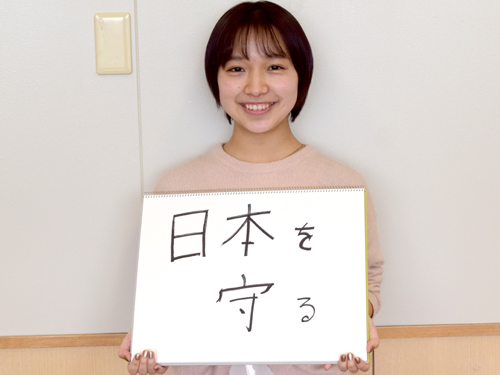 日本を
守る